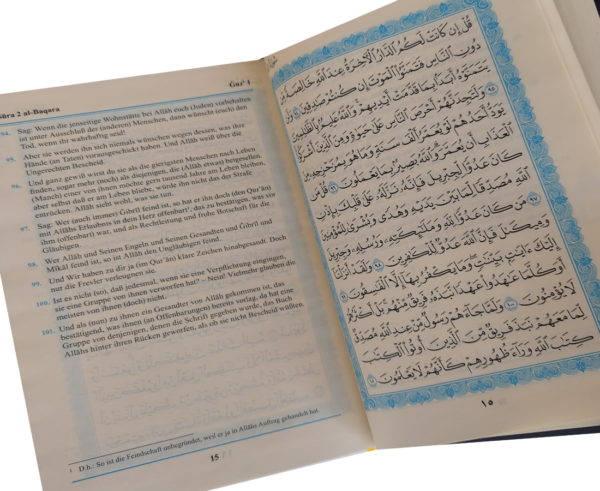 Ǧuz' 1
Sūra 2 al-Baqara
94. Sag: Wenn die jenseitige Wohnstätte bei Allāh euch (Juden) vorbehalten
ist unter Ausschluß der (anderen) Menschen, dann wünscht euch den
Tod, wenn ihr wahrhaftig seid!
95. Aber sie werden ihn sich niemals wünschen wegen dessen, was ihre
Hände (an Taten) vorausgeschickt haben. Und Allāh weiß über die
Ungerechten Bescheid.
96. Und ganz gewiß wirst du sie als die gierigsten Menschen nach Leben
finden, sogar mehr (noch) als diejenigen, die (Allāh etwas) beigesellen.
(Manch) einer von ihnen möchte gern tausend Jahre am Leben bleiben.
aber selbst daß er am Leben bliebe, würde ihn nicht der Strafe
entrücken. Allāh sieht wohl, was sie tun.
97. Sag: Wer (auch immer) Ǧibrīl feind ist, so hat er ihn doch (den Qur'ān)
mit Allāhs Erlaubnis in dein Herz offenbart, das zu bestätigen, was vor
ihm (offenbart) war, und als Rechtleitung und frohe Botschaft für die
Gläubigen.
98. Wer Allāh und Seinen Engeln und Seinen Gesandten und Ǧibrīl und
Mīkāl feind ist, so ist Allāh den Ungläubigen feind.
99. Und Wir haben zu dir ja (im Qur'ān) klare Zeichen hinabgesandt. Doch
nur die Frevler verleugnen sie.
100. Ist es nicht (so), daß jedesmal, wenn sie eine Verpflichtung eingingen,
sie eine Gruppe von ihnen verworfen hat? – Nein! Vielmehr glauben die
meisten von ihnen (doch) nicht.
101. Und als (nun) zu ihnen ein Gesandter von Allāh gekommen ist, das
bestätigend, was ihnen (an Offenbarungen) bereits vorlag, da hat eine
Gruppe von denjenigen, denen die Schrift gegeben wurde, das Buch
Allāhs hinter ihren Rücken geworfen, als ob sie nicht Bescheid wüßten.
1 D.h.: So ist die Feindschaft unbegründet, weil er ja in Allāhs Auftrag gehandelt hat.
15
قُلْ إِن كَانَتْ لَكُمُ الدَّارُ الْآخِرَةُ عِندَ اللَّهِ خَالِصَةً مِّن
دُونِ النَّاسِ فَتَمَنَّوُا الْمَوْتَ إِن كُنتُمْ صَٰدِقِينَ ٩٤ وَلَن
يَتَمَنَّوْهُ أَبَدًا بِمَا قَدَّمَتْ أَيْدِيهِمْ وَاللَّهُ عَلِيمٌ بِالظَّٰلِمِينَ ٩٥
وَلَتَجِدَنَّهُمْ أَحْرَصَ النَّاسِ عَلَىٰ حَيَوٰةٍ وَمِنَ الَّذِينَ أَشْرَكُوا
يَوَدُّ أَحَدُهُمْ لَوْ يُعَمَّرُ أَلْفَ سَنَةٍ وَمَا هُوَ بِمُزَحْزِحِهِ مِنَ
الْعَذَابِ أَن يُعَمَّرَ وَاللَّهُ بَصِيرٌ بِمَا يَعْمَلُونَ ٩٦ قُلْ مَن
كَانَ عَدُوًّا لِّجِبْرِيلَ فَإِنَّهُ نَزَّلَهُ عَلَىٰ قَلْبِكَ بِإِذْنِ
اللَّهِ مُصَدِّقًا لِّمَا بَيْنَ يَدَيْهِ وَهُدًى وَبُشْرَىٰ لِلْمُؤْمِنِينَ ٩٧
مَن كَانَ عَدُوًّا لِّلَّهِ وَمَلَٰٓئِكَتِهِ وَرُسُلِهِ وَجِبْرِيلَ
وَمِيكَىٰلَ فَإِنَّ اللَّهَ عَدُوٌّ لِّلْكَٰفِرِينَ ٩٨ وَلَقَدْ أَنزَلْنَا
إِلَيْكَ ءَايَٰتٍ بَيِّنَٰتٍ وَمَا يَكْفُرُ بِهَا إِلَّا الْفَٰسِقُونَ ٩٩
أَوَكُلَّمَا عَٰهَدُوا عَهْدًا نَّبَذَهُ فَرِيقٌ مِّنْهُم بَلْ أَكْثَرُهُمْ
لَا يُؤْمِنُونَ ١٠٠ وَلَمَّا جَاءَهُمْ رَسُولٌ مِّنْ عِندِ اللَّهِ مُصَدِّقٌ
لِّمَا مَعَهُمْ نَبَذَ فَرِيقٌ مِّنَ الَّذِينَ أُوتُوا الْكِتَٰبَ
كِتَٰبَ اللَّهِ وَرَاءَ ظُهُورِهِمْ كَأَنَّهُمْ لَا يَعْلَمُونَ ١٠١
١٥